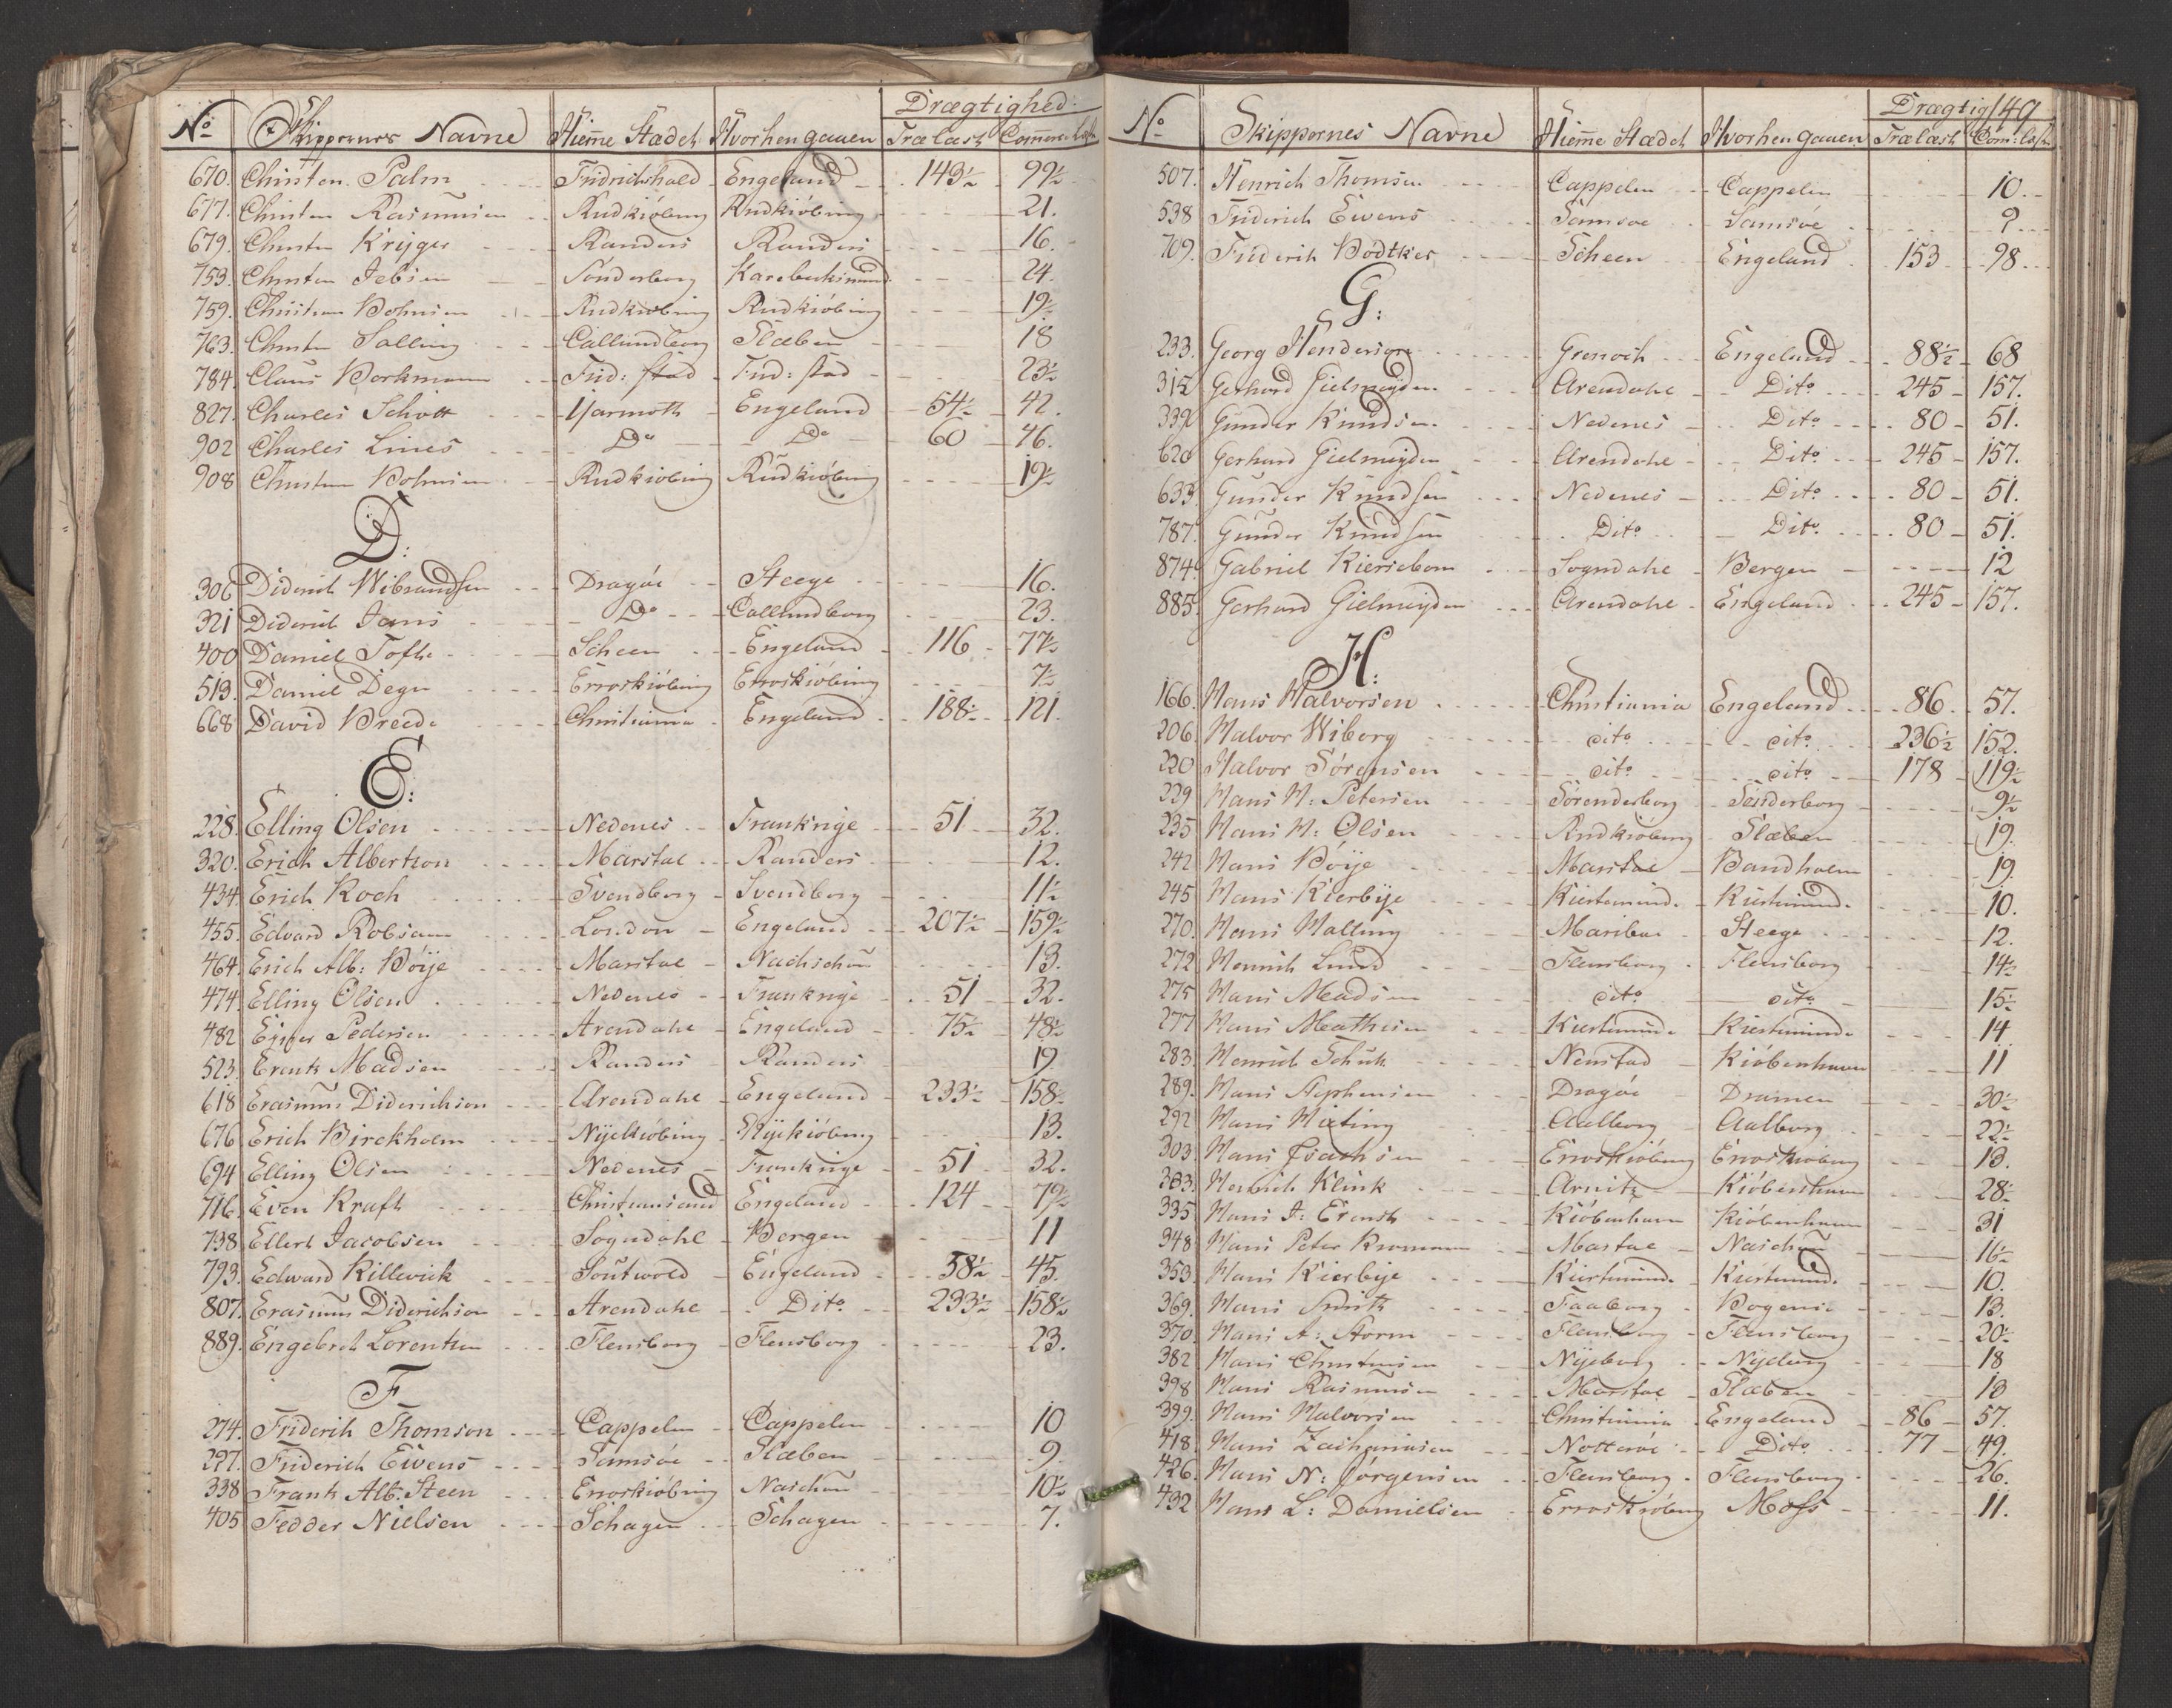 Drægtighed:
No Skippernes Navne Hieme Stædet Hvorhen gaaen Trælæst Commerce Læst
670. Christen Palm Fridrichshald Engeland 143½ 99½
677. Christen Rasmusen Rudkiöbing Rudkiöbing 21.
679. Christen Krÿger Randers Randers 16.
753. Christen Jebsen Sönderborg Karrebeksmind 24.
759. Christen Bohnsen Rudkiöbing Rudkiöbing 19½
763. Christen Salling Callundborg Slæben 18
784. Claus Borkmann Frid: stad Frid: stad 23½
827. Charles Schott Yarmoth Engeland 54½ 42.
902 Charles Lines Do Do 60 46.
908 Christen Bohnsen Rudkiöbing Rudkiöbing 19½
D:
306 Diderich Wibrandsen Dragöe Steege 16.
321 Diderich Jans Do Callundborg 23.
400 Daniel Tofte Scheen Engeland 116 77½
513. Daniel Degn Erroskiöbing Erroskiöbing 7½
668 David Breede Christiania Engeland 188½ 121.
E:
228. Elling Olsen Nedenes Frankrige 51 32.
320. Erich Albertson Marstal Randers 12.
434. Erich Koch Svendborg Svendborg 11½
455. Edvard Robson London Engeland 207½ 159½
464. Erich Alb: Böÿe Marstal Nachschou 13.
474. Elling Olsen Nedenes Frankrige 51 32.
482 Ejner Pedersen Arendahl Engeland 75½ 48½
523. Erentz Madsen Randers Randers 19.
618 Erasmus Diderichson Arendahl Engeland 233½ 158½
676 Erich Birckholm Nÿekiöbing Nÿekiöbing 13.
694 Elling Olsen Nedenes Frankrige 51 32.
716. Even Kraft Christiansand Engeland 124 79½
738. Ellert Jacobsen Sogndahl Bergen 11
793. Edward Killwick Soutwold Engeland 58½ 45.
807. Erasmus Diderichson Arendahl Dito 233½ 158½
889. Engebret Lorentsen Flensborg Flensborg 23.
F
274. Friderich Thomson Cappelen Cappelen 10
297. Friderich Eivens Samsöe Slæben 9.
338 Frantz Alb. Steen Erroskiöbing Naschou 10½
405 Fedder Nielsen Schagen Schagen 7.
Drægtig 149
No Skippernes Navne Hieme Stædet Hvorhen gaaen Trælæst Com: læst
507. Henrich Thomsen Cappelen Cappelen 10.
538 Friderich Eivens Samsoe Samsöe 9.
709. Friderich Bödtker Scheen Engeland 153 98.
G:
233. Georg Henderson Grenoch Engeland 88½ 68
312 Gerhard Gielmeÿden Arendahl Dito 245 157.
339 Gunder Knudsen Nedenes Dito 80 51.
620 Gerhard Gielmeÿden Arendahl Dito 245 157.
633. Gunder Knudsen Nedenes Dito 80 51.
787. Gunder Knudsen Dito Dito 80 51.
874. Gabriel Kiersebom Sogndahl Bergen 12
885. Gerhard Gielmeÿden Arendahl Engeland 245 157.
H:
166. Hans Halvorsen Christiania Engeland 86 57.
206. Halvor Wiborg dito dito 236½ 152.
220 Halvor Sörensen dito dito 178 119½
229 Hans H: Petersen Sörenderborg Sönderborg 9½
235 Hans H: Olsen Rudkiöbing Slæben 19.
242 Hans Böije Marstal Bandholm 19.
245 Hans Kierbÿe Kiertemind. Kiertemind. 10.
270. Hans Malling Mariboe Steege 12.
272 Henrich Lund Flensborg Flensborg 14½
275 Hans Madsen dito dito 15½
277 Hans Mathisen Kierteminde Kierteminde 14
283. Henrich Schütt Neustad Kiöbenhavn 11
289. Hans Stephensen Dragöe Dramen 30½
292 Hans Hieting Aalborg Aalborg 22½
303 Hans Isachsen Erroskiöbing Erroskiöbing 13.
333. Henrich Klink Arnitz Kiöbenhavn 28½
335. Hans J: Erensts Kiöbenhavn Kiöbenhavn 31
348 Hans Peter Kromann Marstal Naschou 16½
353. Hans Kierbÿe Kiertemind. Kiertemind. 10.
369. Hans Smitk Faaborg Bogense 13.
370. Hans A: Storm Flensborg Flensborg 20½
382 Hans Christensen Nÿeborg Nÿeborg 18
398 Hans Rasmusen Marstal Slæben 13
399. Hans Halvorsen Christiania Engeland 86 57.
418. Hans Zachariasen Notteröe Dito 77 49.
426. Hans N: Jörgensen Flensborg Flensborg 26.
432 Hans L: Danielsen Erroskiöbing Moss 11.